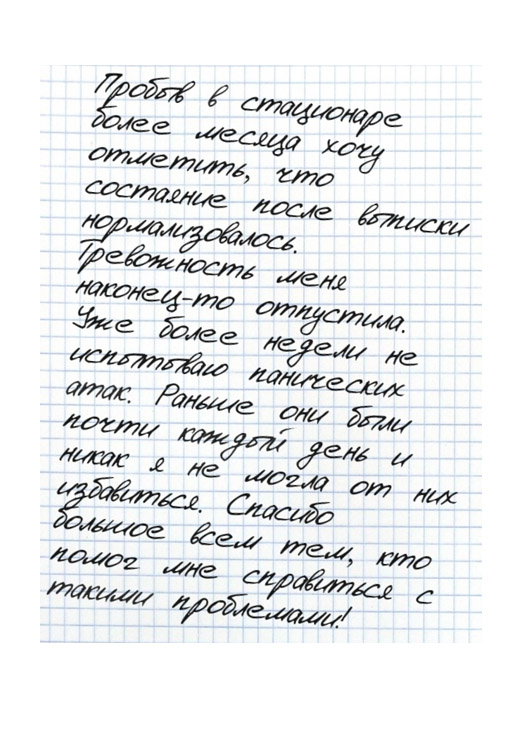 Пробыв в стационаре
более месяца хочу
отметить, что
состаяние после выписки
нормализовалось.
Тревожность меня
наконец-то отпустила.
Уже более недели не
испытываю панических
атак. Раньше они были
почти каждый день и
никак я не могла от них
избавиться. Спасибо
большое всем тем, кто
помог мне справиться с
такими проблемами!